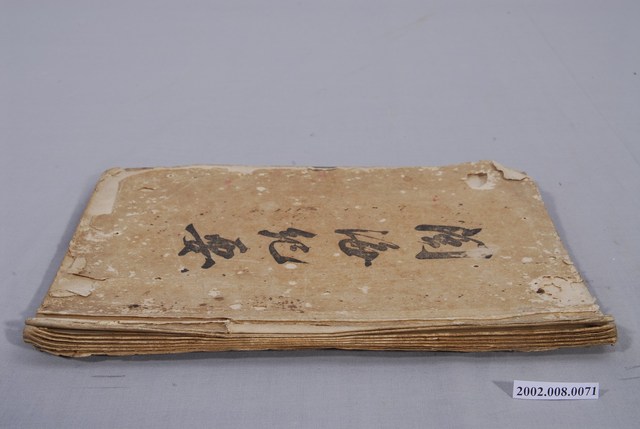 閩海紀要
2002.008.0071